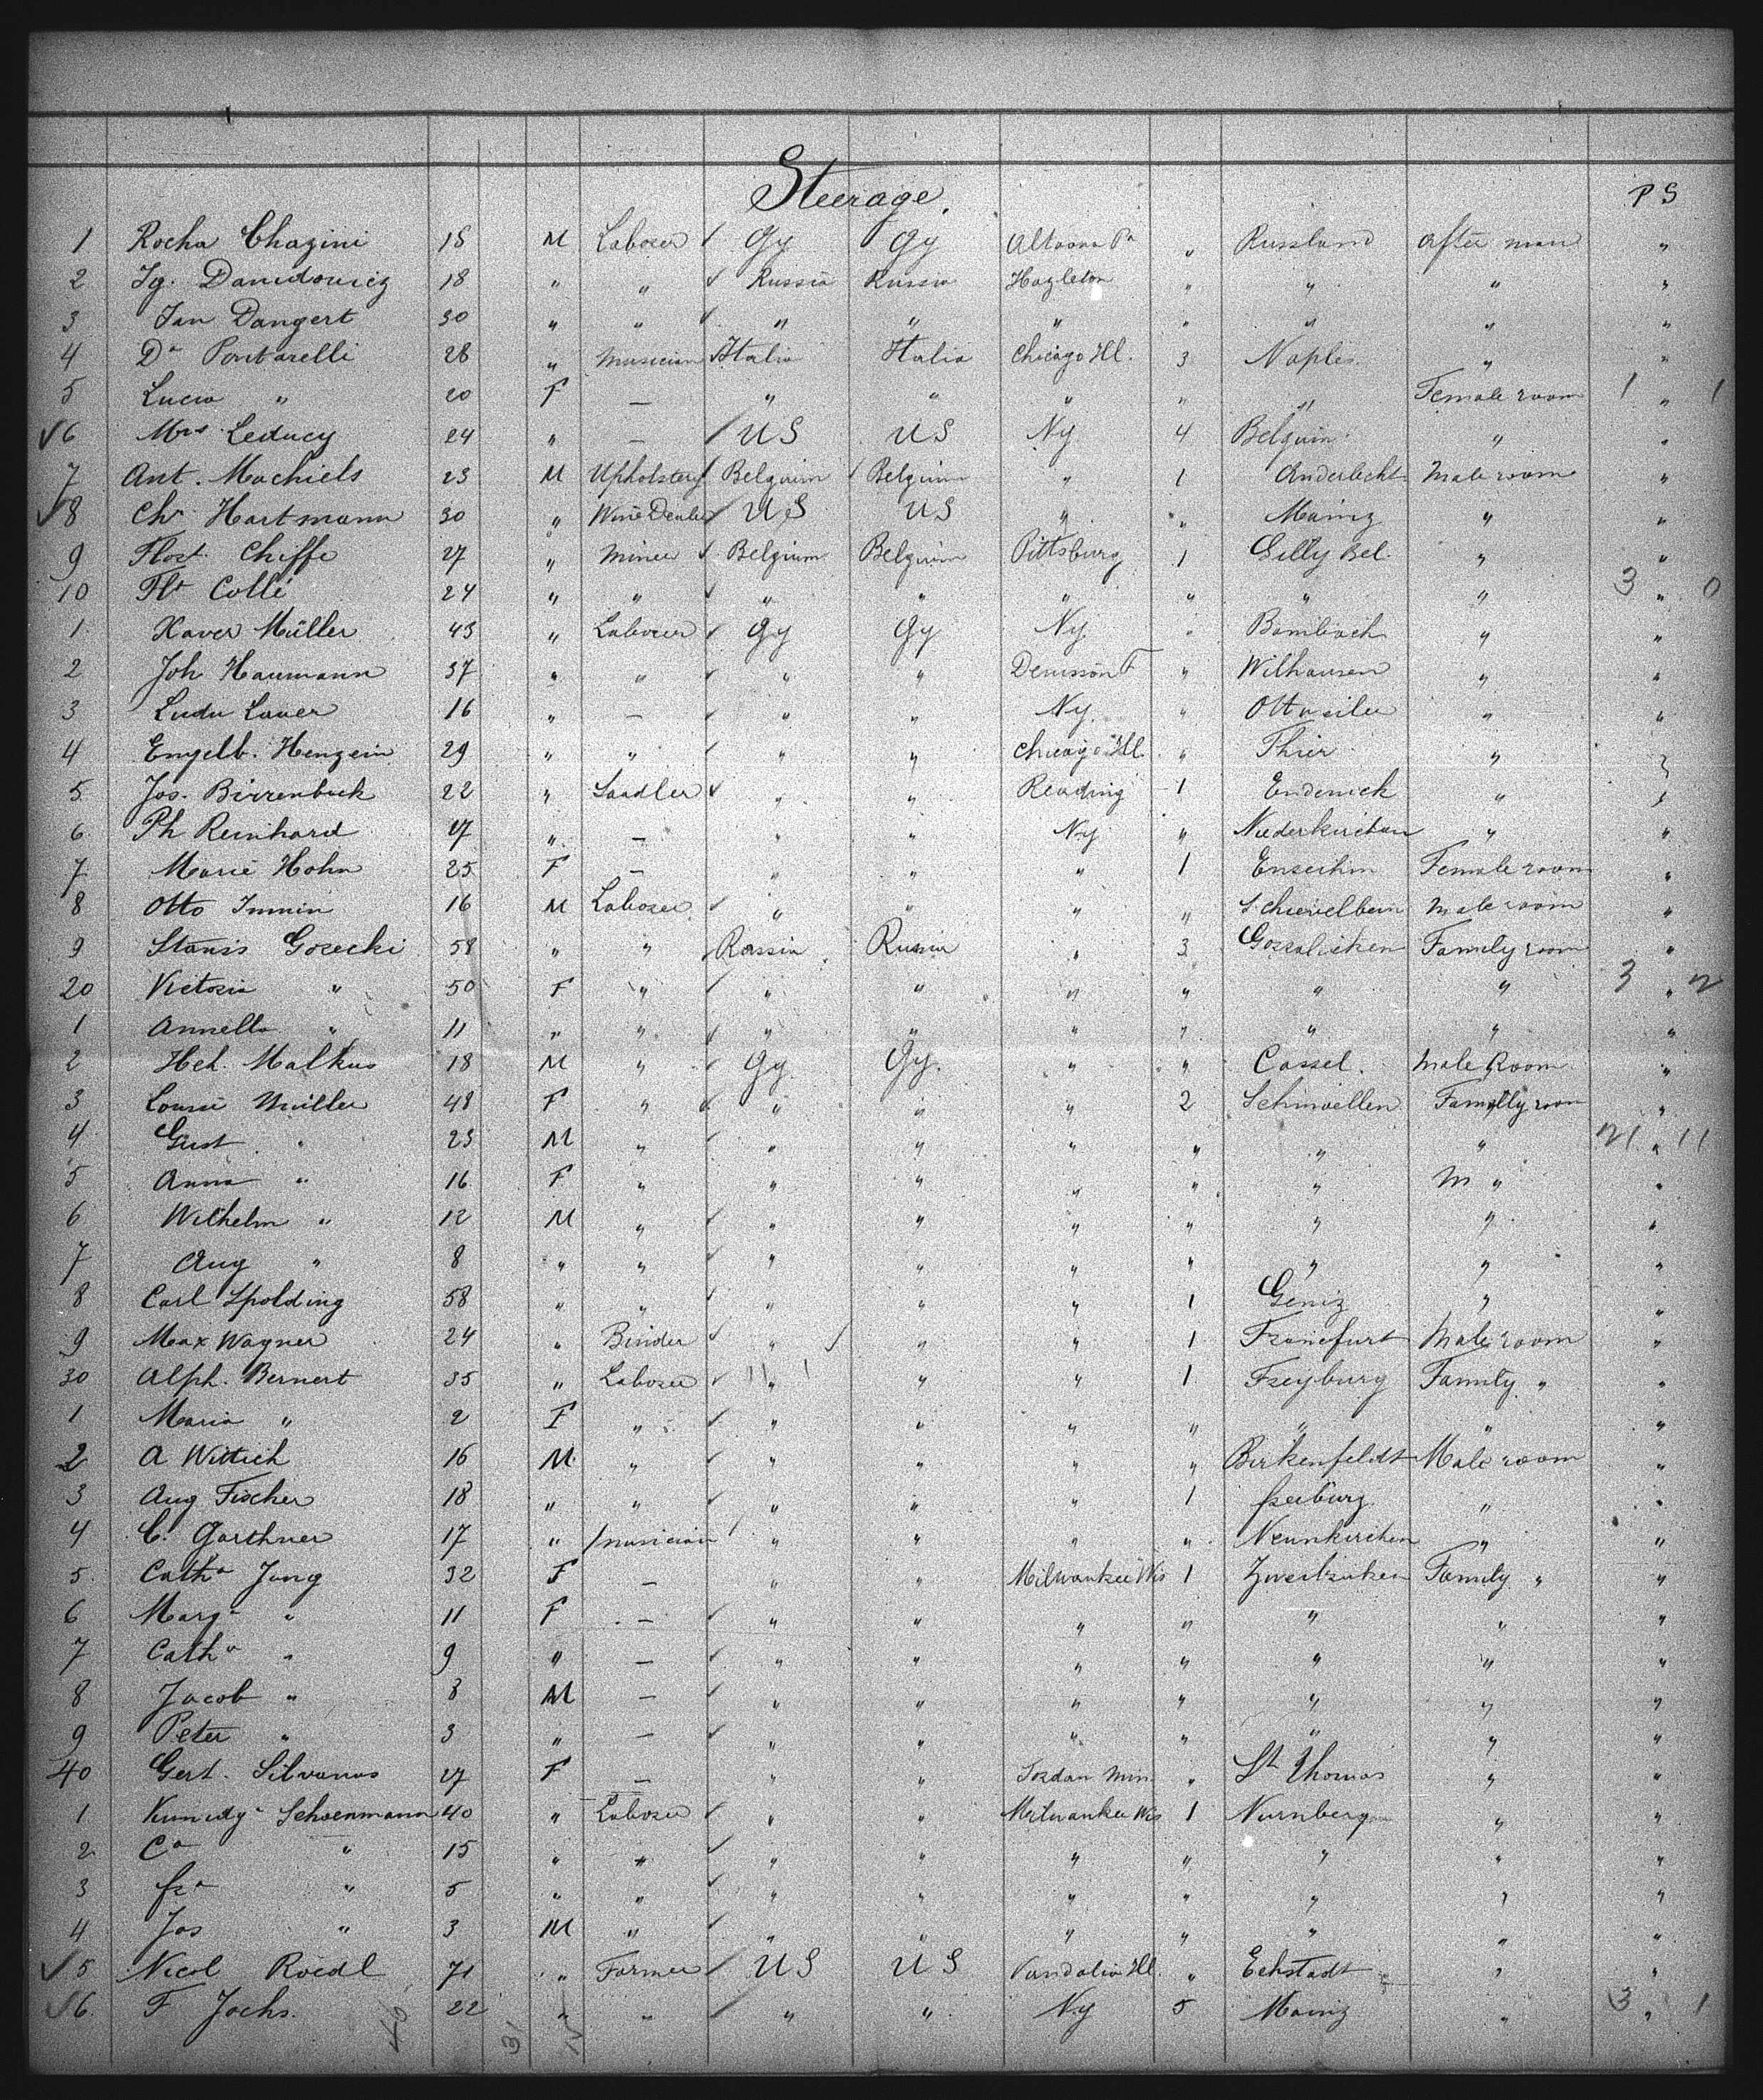 Steerage.
P S
1 Rocha Chazini 18 M Laborer Gy Gy Altoona Pa " Russland after man "
2 Ig. Davidowicz 18 " " Russia Russia Hazleton " " " "
3 Jan Dangert 30 " " " " " " " " "
4 Da Pontarelli 28 " Musician Italia Italia Chicago Ill. 3 Naples " "
5 Lucia " 20 F — " " " " " Female room 1 " 1
6 Mrs Leducy 24 " — US US Ny 4 Belgium " "
7 Ant. Machiels 23 M Upholstery Belgium Belgium " 1 Anderlecht Male room "
8 Chr Hartmann 30 " Wine Dealer US US " " Mainz " "
9 Flort. Chiffe 27 " Miner Belgium Belgium Pittsburg 1 Gilly Bel. " "
10 Flt Collé 24 " " " " " " " " 3 " 0
1 Xaver Müller 43 " Laborer Gy Gy Ny " Bombach " "
2 Joh Naumann 37 " " " " Denisson " Wilhausen " "
3 Ludw Lauer 16 " — " " Ny. " Ottweiler " "
4 Engelb. Henzein 29 " " " " Chicago Ill. " Thier " "
5 Jos. Birrenbeck 22 " Saadler " " Reading 1 Endenich " "
6 Ph Reinhard 17 " — " " Ny " Niederkirchen " "
7 Marie Hohn 25 F — " " " 1 Female room "
8 Otto Immin 16 M Laborer " " " " Schievelbein Male room "
9 Stanis Gosecki 58 " " Russia Russia " 3 Family room "
20 Victoria " 50 F " " " " " " " 3 " 2
1 Annella " 11 " " " " " " " " "
2 Hch. Malkus 18 M " Gy Gy. " " Cassel. Male Room "
3 Louise Müller 48 F " " " " 2 Schmoellen Family room "
4 Gust " 23 M " " " " " " " 21 " 11
5 Anna " 16 F " " " " " " M " "
6 Wilhelm " 12 M " " " " " " " "
7 Aug " 8 " " " " " " " " "
8 Carl Spolding 58 " " " " " 1 Geniz " "
9 Max Wagner 24 " Binder " " " 1 Francfurt Male room "
30 Alph. Bernert 35 " Laborer " " " 1 Freyburg Family " "
1 Maria " 2 F " " " " " " " "
2 A Wittich 16 M " " " " " Birkenfeldt Male room "
3 Aug Fischer 18 " " " " " 1 freiburg " "
4 C. Garthner 17 " Musician " " " " Neunkirchen " "
5 Catha Jung 32 F — " " Milwaukee Wis 1 Family " "
6 Marga " 11 F — " " " " " " "
7 Catha " 9 " — " " " " " " "
8 Jacob " 8 M — " " " " " " "
9 Peter " 3 " — " " " " " " "
40 Gert. Silvanus 17 F — " " Jordan Min. " St Thomas " "
1 Kunidga Schoenmann 40 " Laborer " " Milwaukee Wis 1 Nurnberg " "
2 Ca " 15 " " " " " " " " "
3 fra " 5 " " " " " " " " "
4 Jos " 3 M " " " " " " " "
5 Nicol Roedl 71 " Farmer US US Vandalia Ill. " Echstadt " "
6. F Jochs. 22 " " " " Ny 5 Mainz " 3 " 1